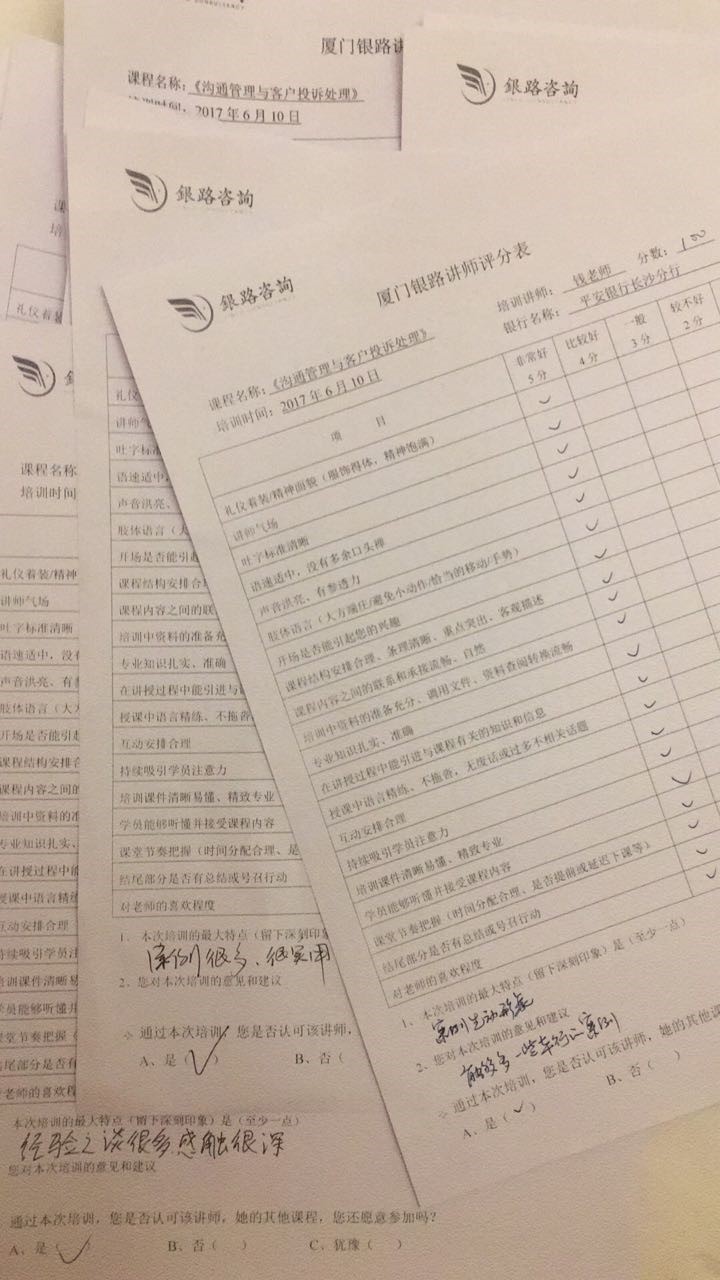 厦门银路讲
课程名称：《沟通管理与客户投诉处理》
2017年6月10日
銀路咨詢
銀路咨詢
銀路咨詢
厦门银路讲师评分表
培训讲师：钱老师 分数：100
银行名称：平安银行长沙分行
课程名称：《沟通管理与客户投诉处理》
培训时间：2017年6月10日
项 目
非常好 5分
比较好 4分
一般 3分
较不好 2分
礼仪着装/精神面貌（服饰得体，精神饱满）
讲师气场
吐字标准清晰
语速适中，没有多余口头禅
声音洪亮、有参透力
肢体语言（大方端庄/避免小动作/恰当的移动/手势）
开场是否能引起您的兴趣
课程结构安排合理、条理清晰、重点突出、客观描述
课程内容之间的联系和承接流畅、自然
培训中资料的准备充分、调用文件、资料查阅转换流畅
专业知识扎实、准确
在讲授过程中能引进与课程有关的知识和信息
授课中语言精练、不拖沓，无废话或过多不相关话题
互动安排合理
持续吸引学员注意力
培训课件清晰易懂、精致专业
学员能够听懂并接受课程内容
课堂节奏把握（时间分配合理、是否提前或延迟下课等）
结尾部分是否有总结或号召行动
对老师的喜欢程度
1、本次培训的最大特点（留下深刻印象）是（至少一点）
案例生动形象
2、您对本次培训的意见和建议
能够多一些本行业案例
通过本次培训，您是否认可该讲师，她的其他课
A、是（✓） B、否（ ）
礼仪
讲师气
吐字标准
语速适中，
声音洪亮、
肢体语言（大
开场是否能引起
课程结构安排合
课程内容之间的联
培训中资料的准备充
专业知识扎实、准确
在讲授过程中能引进与
授课中语言精练、不拖沓
互动安排合理
持续吸引学员注意力
培训课件清晰易懂、精致专业
学员能够听懂并接受课程内容
课堂节奏把握（时间分配合理、是
结尾部分是否有总结或号召行动
对老师的喜欢程度
1、本次培训的最大特点（留下深刻印象
案例很多、很实用
2、您对本次培训的意见和建议
通过本次培训，您是否认可该讲师，
A、是（✓） B、否（
礼仪着装
课程名称
培训时间
礼仪着装/精神
讲师气场
吐字标准清晰
语速适中，没有
声音洪亮、有参
肢体语言（大方
开场是否能引起
课程结构安排合
课程内容之间的
培训中资料的准
专业知识扎实、
在讲授过程中能
授课中语言精练
互动安排合理
持续吸引学员注
培训课件清晰易
学员能够听懂并
课堂节奏把握（
结尾部分是否有
对老师的喜欢程
本次培训的最大特点（留下深刻印象）是（至少一点）
经验之谈很多，感触很深
您对本次培训的意见和建议
通过本次培训，您是否认可该讲师，她的其他课程，您还愿意参加吗？
A、是（✓） B、否（ ） C、犹豫（ ）